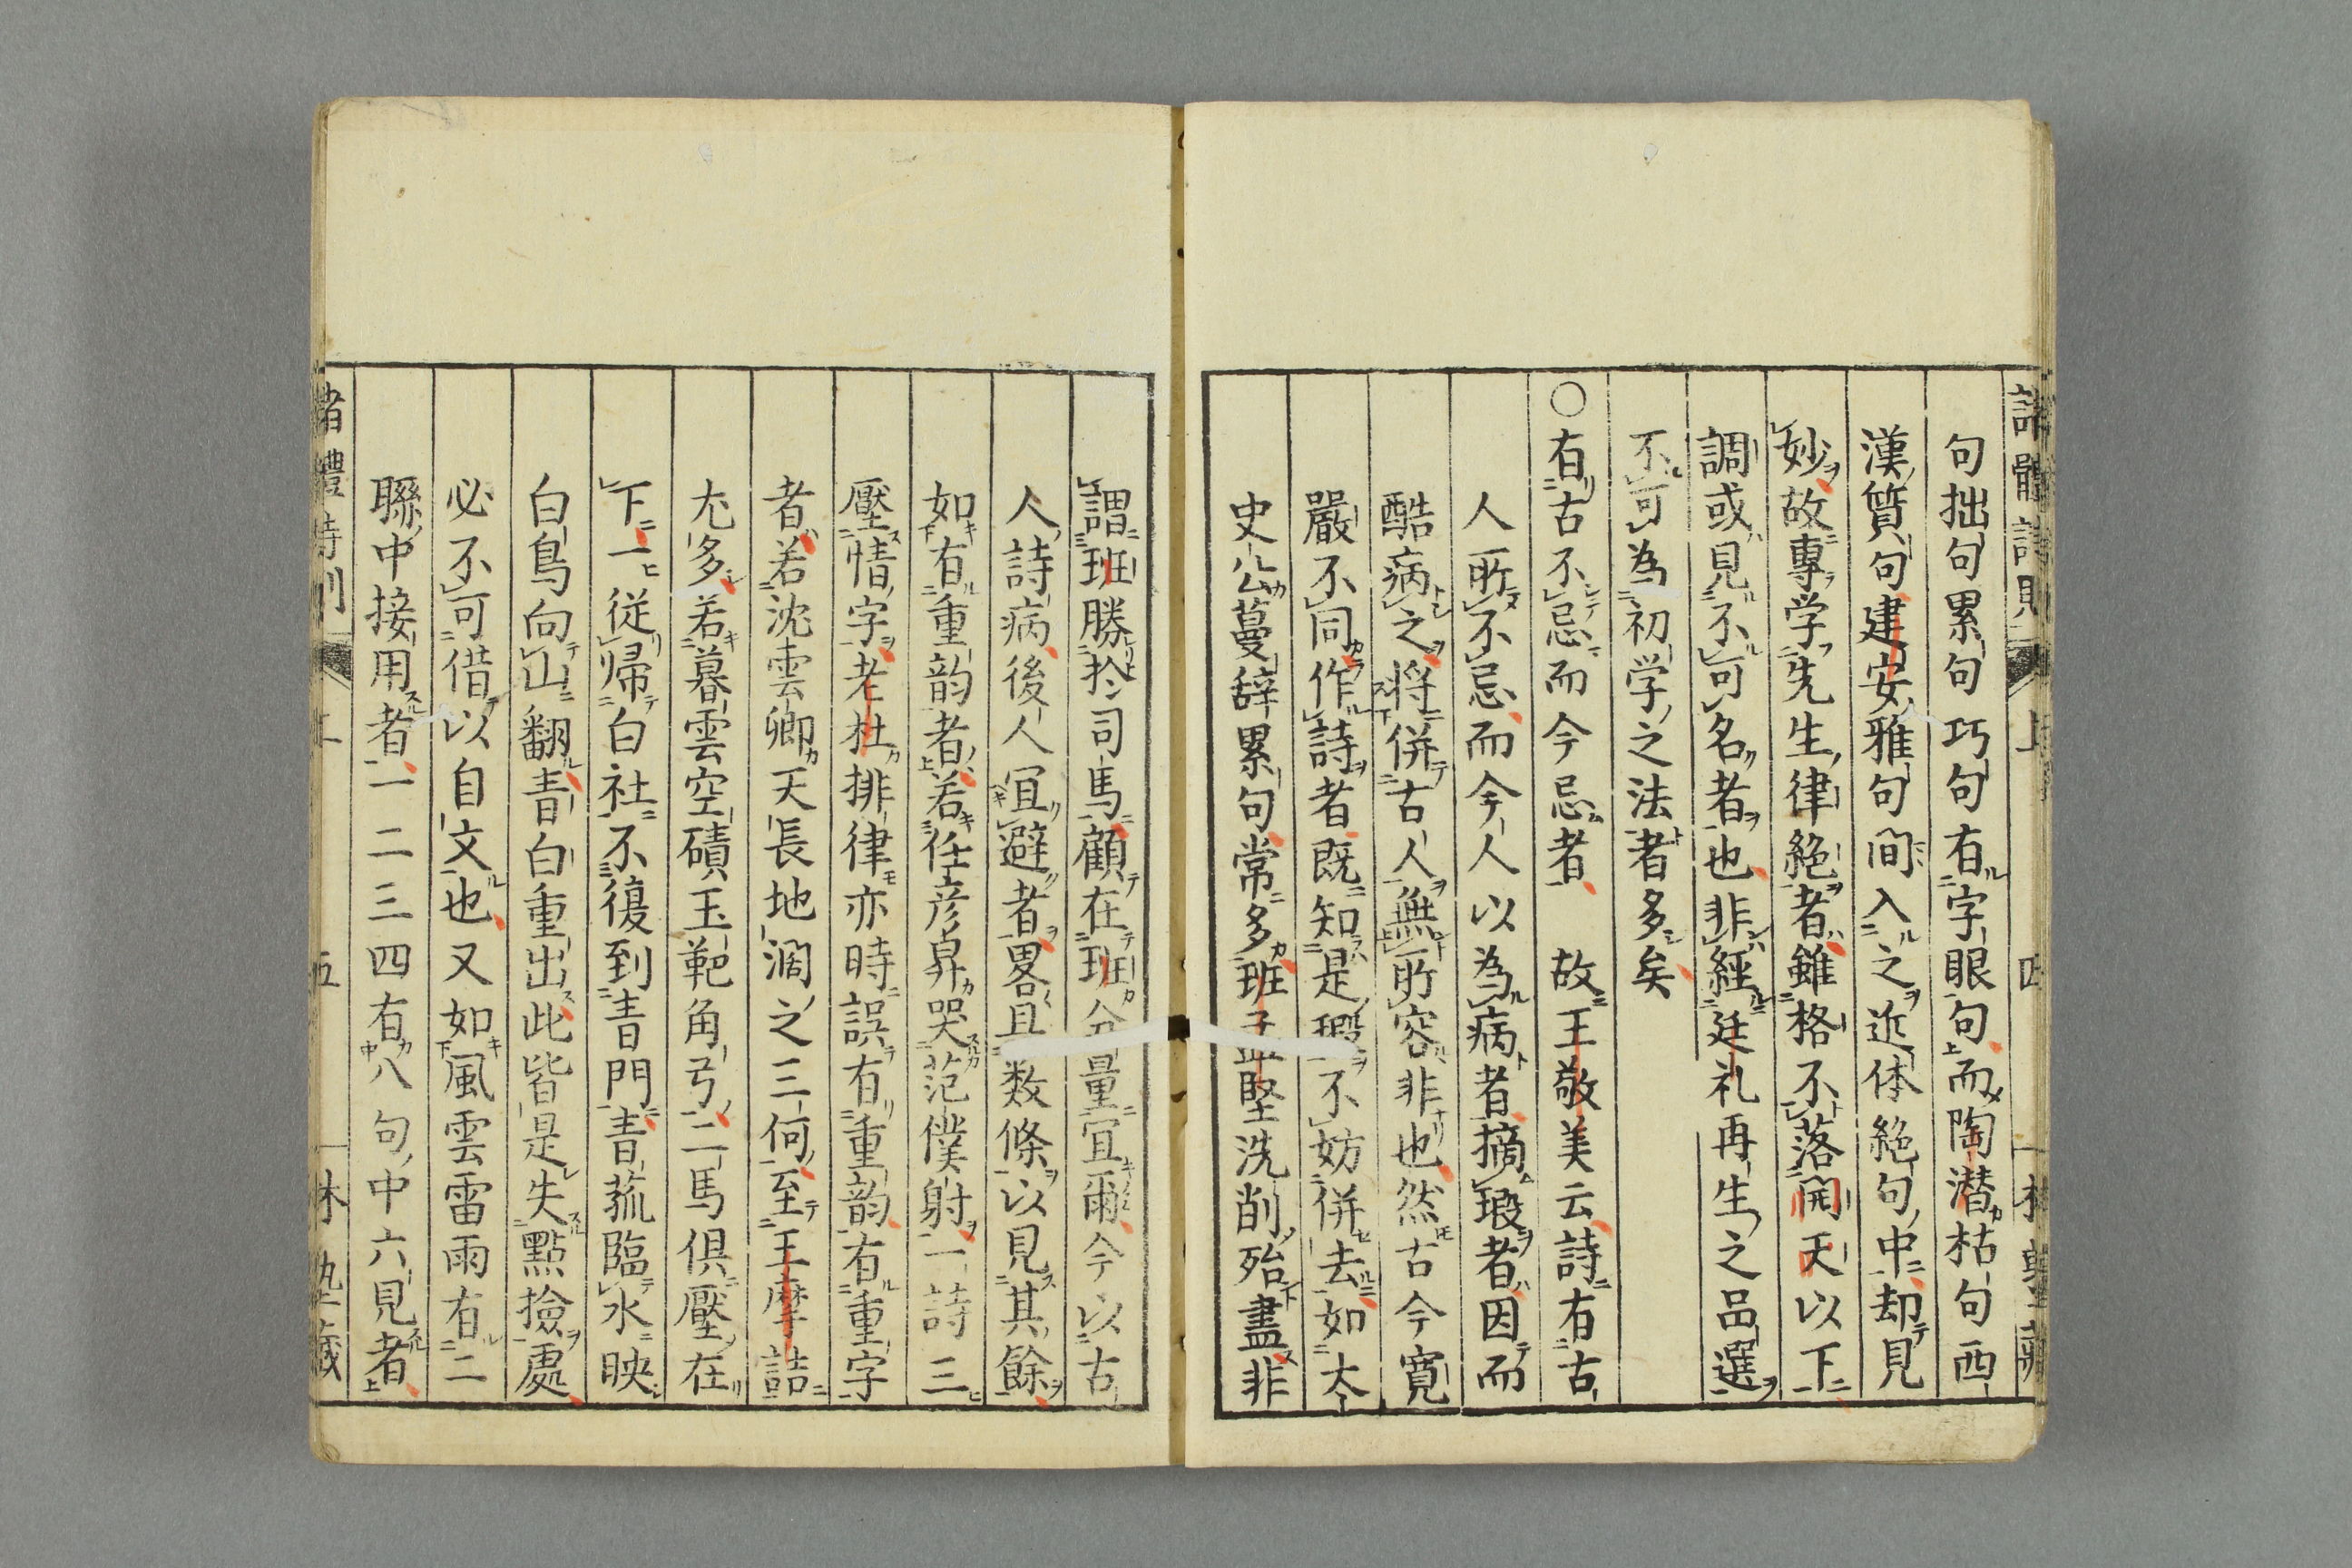 句拙句累句巧句有字眼句而陶潜枯句西
漢質句建安雅句間入之近体絶句中却見
妙故專学先生律絶者雖格不落開天以下
調或見不可名者也非經廷礼再生之品選
不可為初学之法者多矣
○有古不忌而今忌者 故王敬美云詩有古
人所不忌而今人以為病者摘瑕者因而
酷病之将併古人無所容非也然古今寛
嚴不同作詩者既知是瑕不妨併去如大
史公蔓辞累句常多班孟堅洗削殆盡非
謂班勝於司馬顧在班分量宜爾今以古
人詩病後人宜避者畧且数條以見其餘
如有重韵者若任彦昇哭范僕射一詩三
壓情字老杜排律亦時誤有重韵有重字
者若沈雲卿天長地濶之三何至王摩詰
尤多若暮雲空磧玉靶角弓二馬俱壓在
下一從帰白社不復到青門青菰臨水映
白鳥向山翻青白重出此皆是失點撿處
必不可借以自文也又如風雲雷雨有二
聯中接用者一二三四有八句中六見者